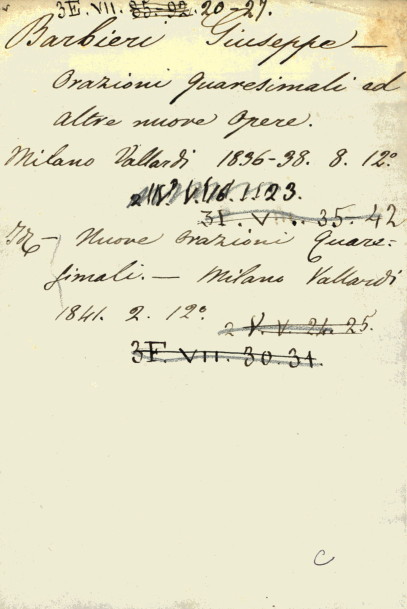 3E. VII. 85-92. 20-27.
Barbieri Giuseppe —
Orazioni Quaresimali ed
altre nuove Opere.
Milano Vallardi 1836-38. 8. 12º
23.
35-42
Id — Nuove Orazioni Quare-
simali. — Milano Vallardi
1841. 2. 12º
2 V. V. 24. 25.
3E. VII. 30. 31.
C